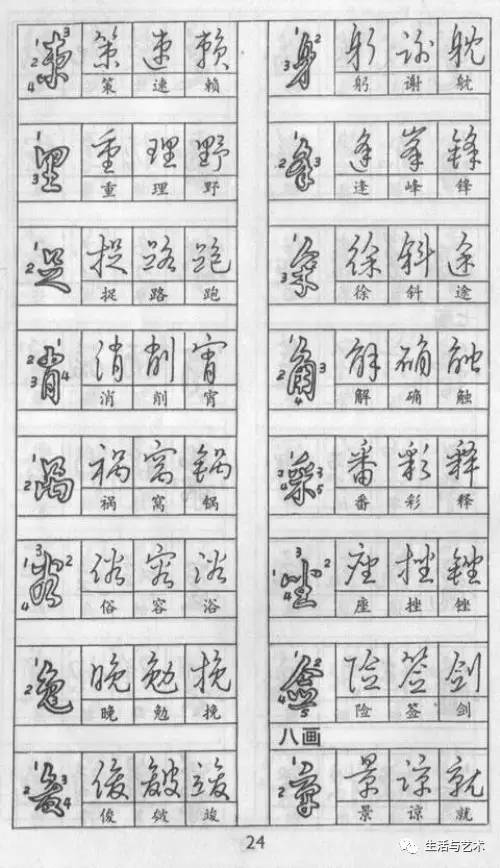 束 策 速 赖
策 速 赖
里 重 理 野
重 理 野
足 捉 路 跑
捉 路 跑
肖 消 削 宵
消 削 宵
呙 祸 窝 锅
祸 窝 锅
谷 俗 容 浴
俗 容 浴
免 晚 勉 挽
晚 勉 挽
夋 俊 皴 竣
俊 皴 竣
身 躬 谢 躭
躬 谢 躭
夆 逢 峰 锋
逢 峰 锋
余 徐 斜 途
徐 斜 途
角 解 确 触
解 确 触
番 彩 释
番 彩 释
坐 座 挫 锉
座 挫 锉
佥 险 签 剑
险 签 剑
八画
京 景 谅 就
景 谅 就
24
生活与艺术